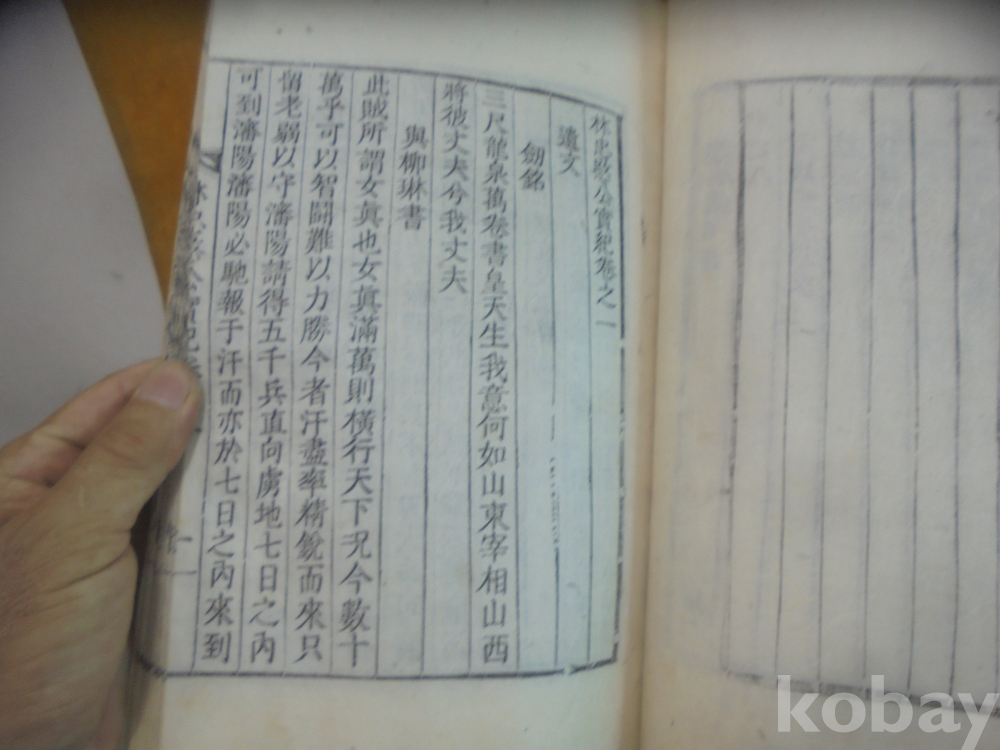 林忠愍公實紀卷之一
遺文
劒銘
三尺龍泉萬卷書皇天生我意何如山東宰相山西
將彼丈夫兮我丈夫
與柳琳書
此賊所謂女眞也女眞滿萬則橫行天下况今數十
萬乎可以智鬪難以力勝今者汗盡率精銳而來只
留老弱以守瀋陽請得五千兵直向虜地七日之內
可到瀋陽瀋陽必馳報于汗而亦於七日之內來到
kobay